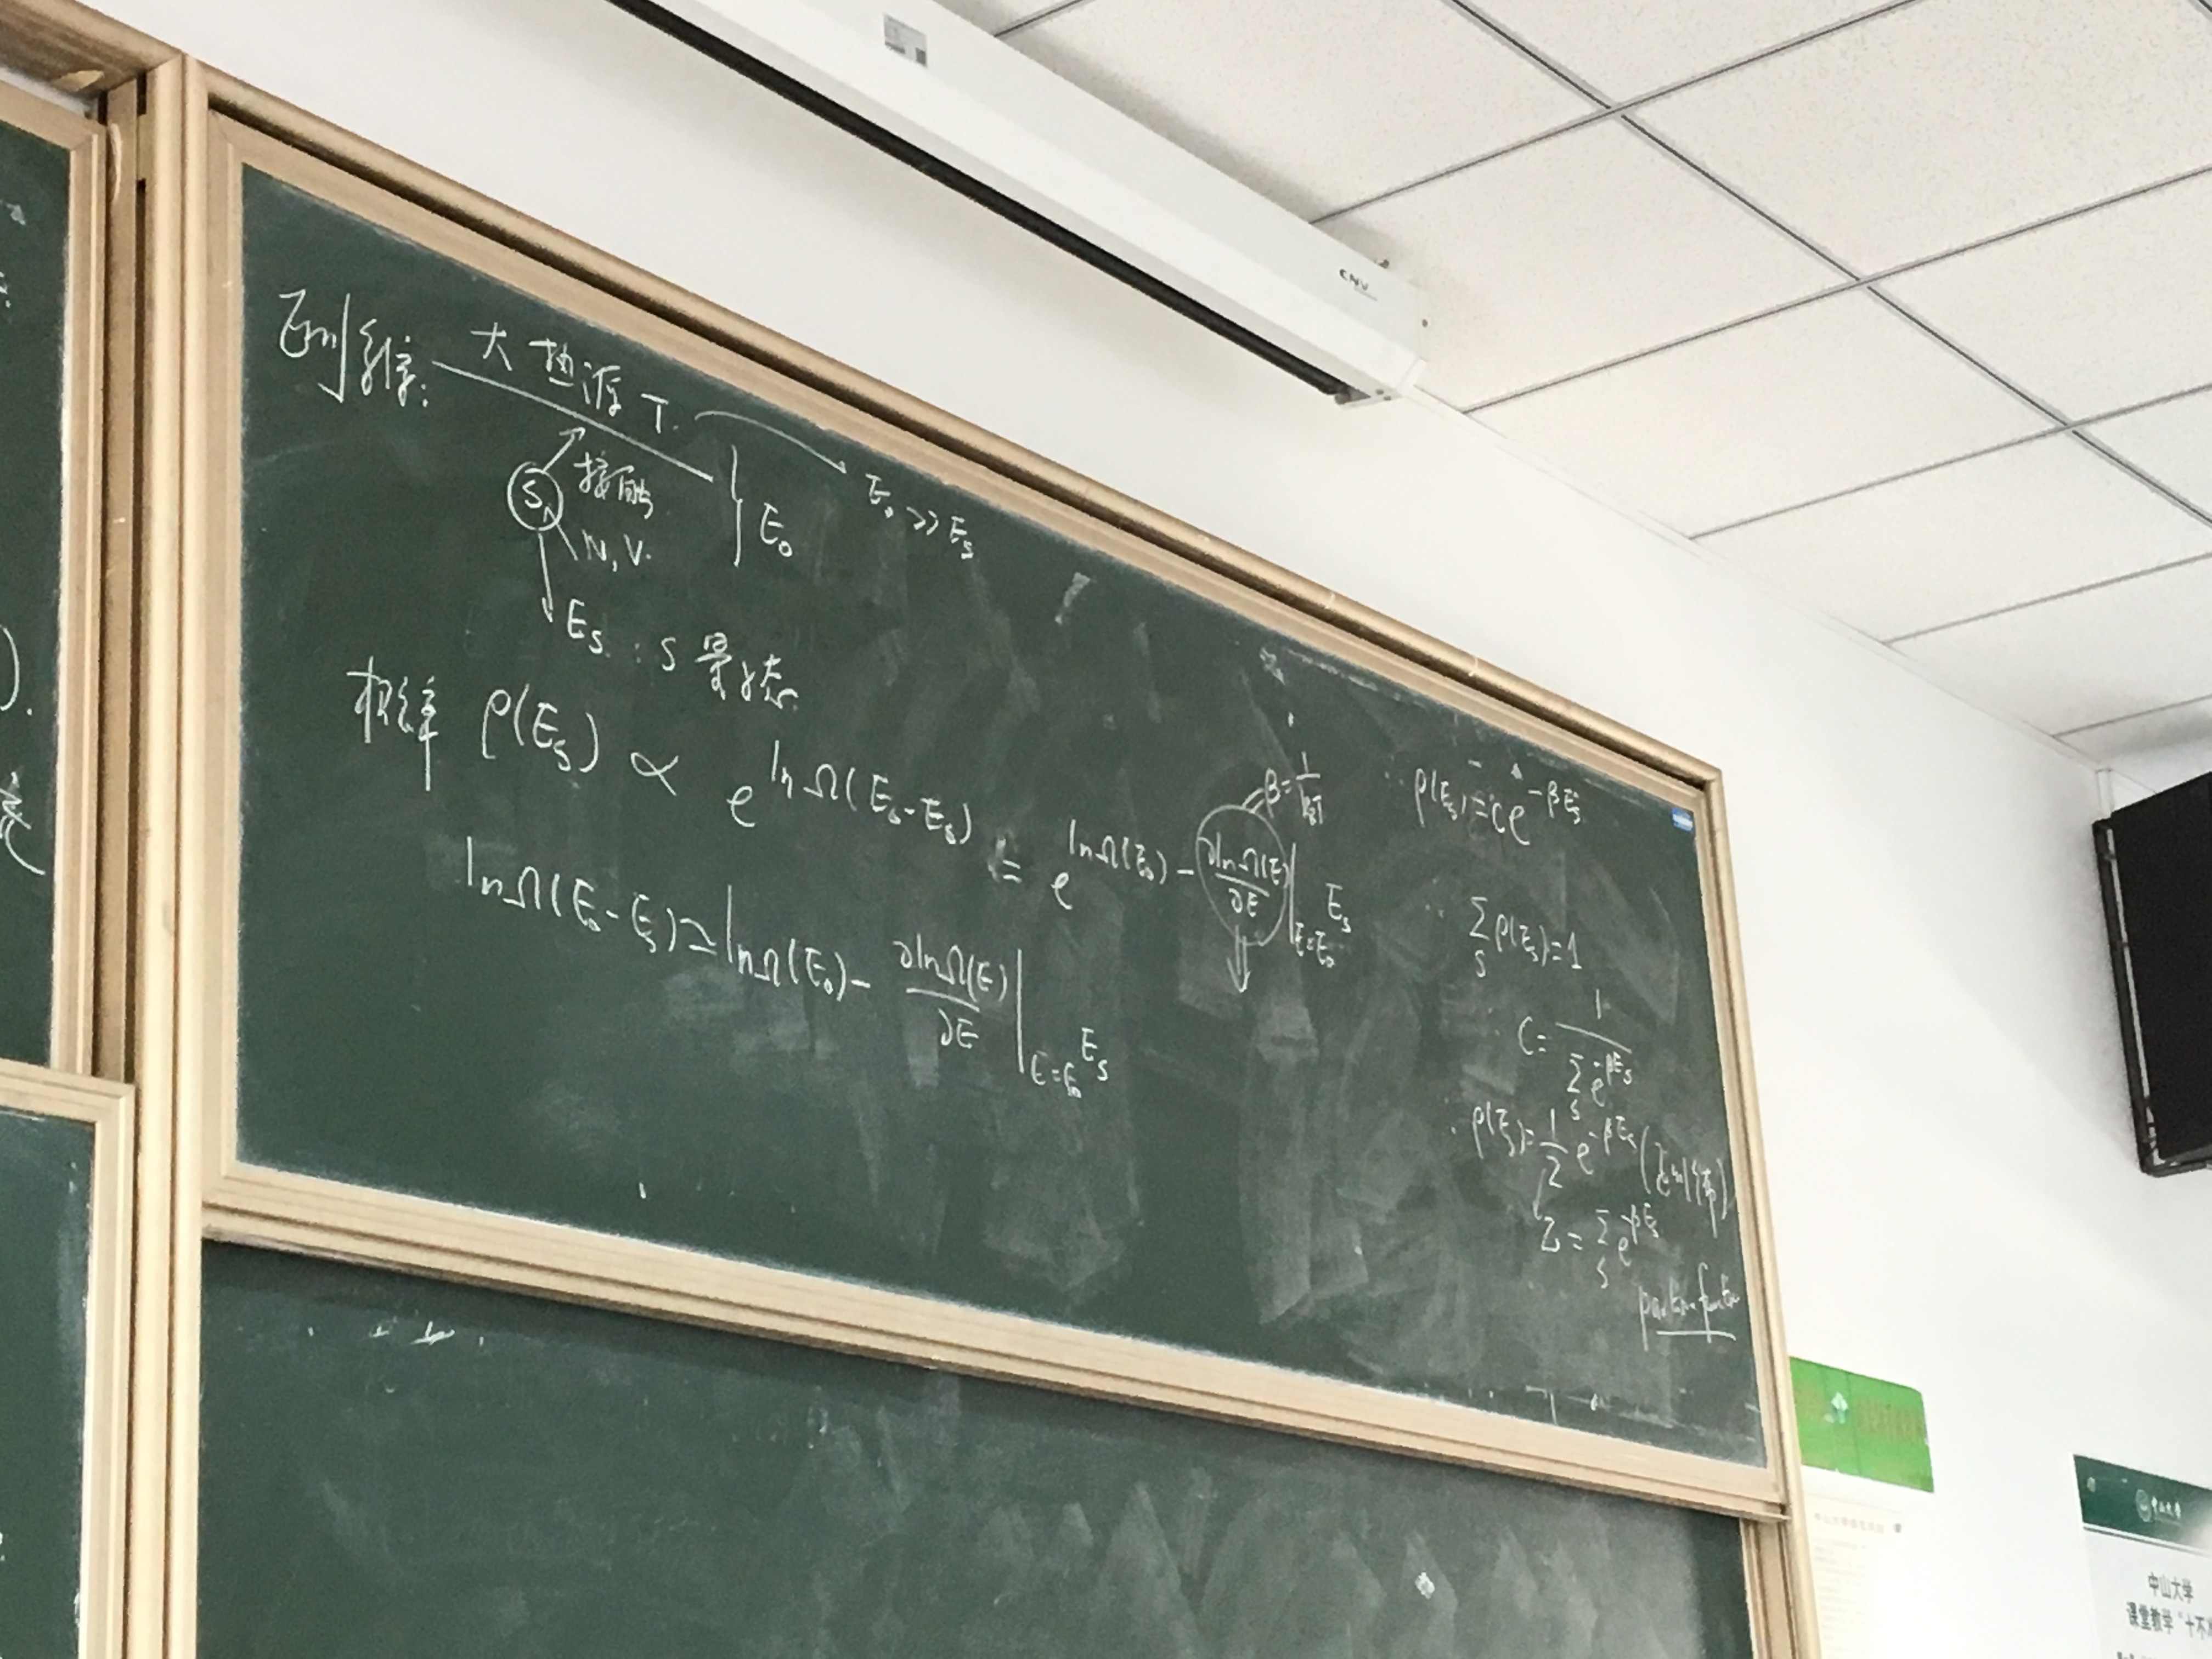 正则系综:
大热源 T.
E₀ >> Eₛ
S 接触
N, V.
E₀
Eₛ : S 量子态
概率 ρ(Eₛ) ∝ e^{lnΩ(E₀-Eₛ)} = e^{lnΩ(E₀) - ∂lnΩ(E)/∂E |_{E=E₀} Eₛ}
β = 1/k_BT
lnΩ(E₀-Eₛ) ≃ lnΩ(E₀) - ∂lnΩ(E)/∂E |_{E=E₀} Eₛ
∴ ρ(Eₛ) = ce^{-βEₛ}
∵ Σₛ ρ(Eₛ) = 1
C = 1/Σₛ e^{-βEₛ}
∴ ρ(Eₛ) = 1/Z e^{-βEₛ} (正则分布)
Z = Σₛ e^{-βEₛ}
partition function
CNV
中山大学
中山大学
课堂教学"十不